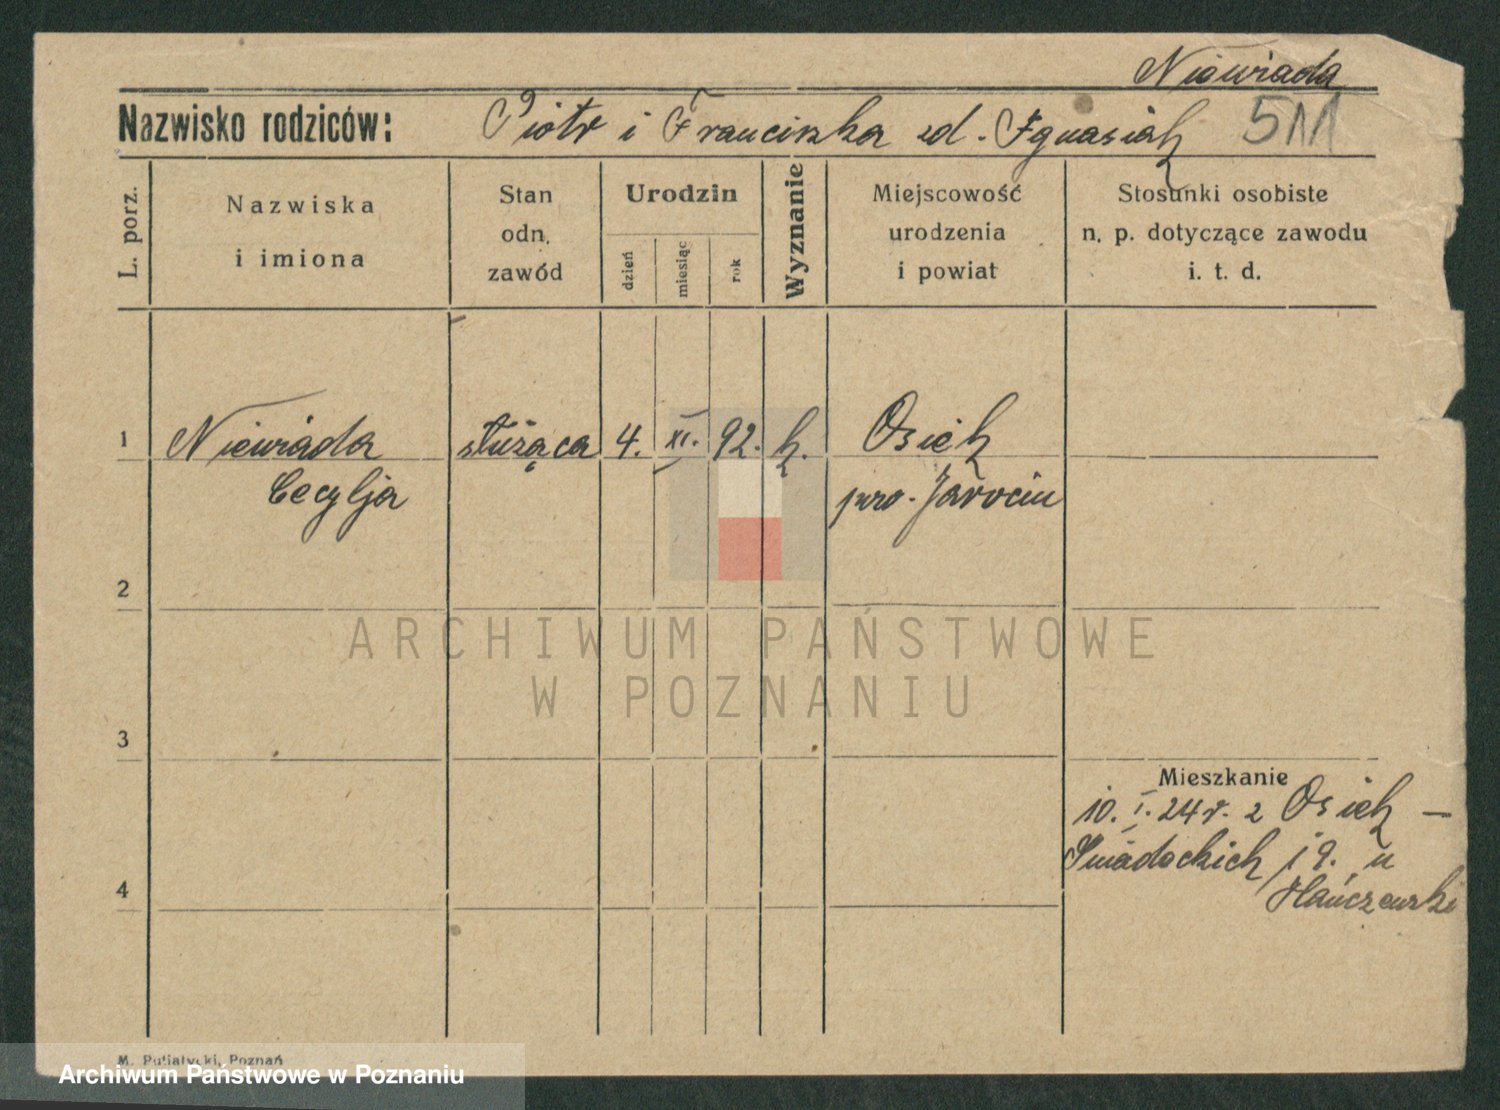 Niewiada
Nazwisko rodziców: Piotr i Franciszka zd. Ignasiak 511
L. porz.
Nazwiska
i imiona
Stan
odn.
zawód
Urodzin
dzień
miesiąc
rok
Wyznanie
Miejscowość
urodzenia
i powiat
Stosunki osobiste
n. p. dotyczące zawodu
i. t. d.
1 Niewiada służąca 4. XI. 92. k. Osiek
Cecylja pow. Jarocin
2
ARCHIWUM PAŃSTWOWE
W POZNANIU
3
Mieszkanie
10. I. 24 r. z Osiek –
Śniadeckich 19. u
4
M. Putiatycki, Poznań
Archiwum Państwowe w Poznaniu